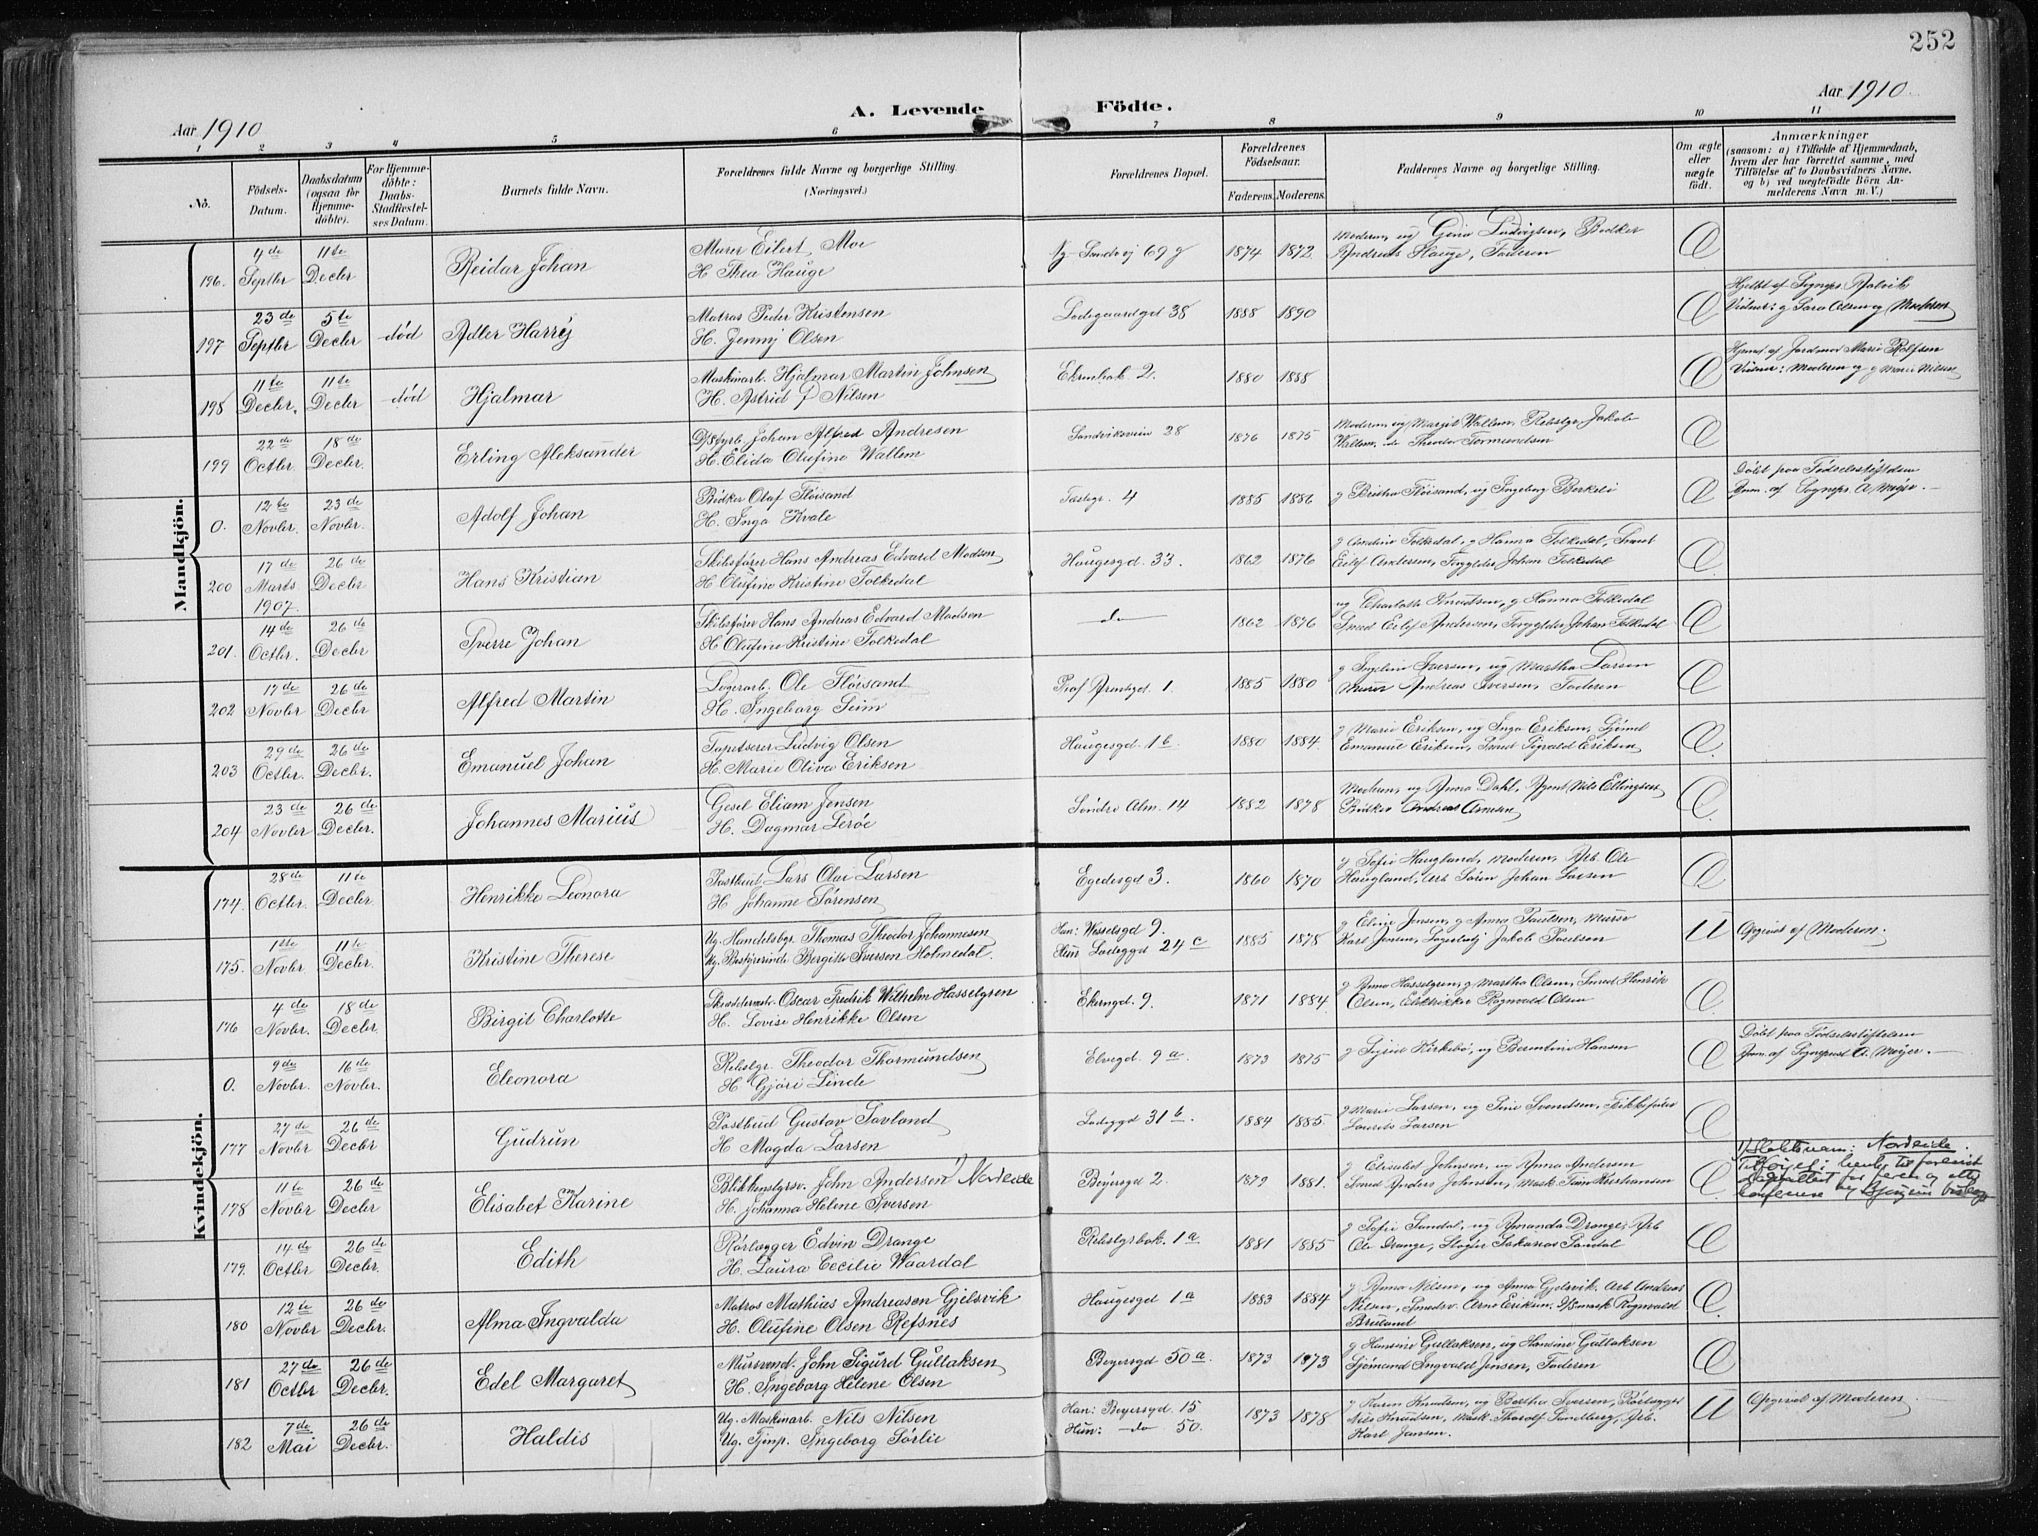 252
Aar 1910
A. Levende Födte.
Aar 1910
1 2 3 4 5 6 7 8 9 10 11
No.
Födsels-Datum.
Daabsdatum (ogsaa for Hjemme-döbte).
For Hjemme-döbte: Daabs-Stadfæstel-ses Datum.
Barnets fulde Navn.
Forældrenes fulde Navne og borgerlige Stilling. (Næringsvei.)
Forældrenes Bopæl.
Forældrenes Födselsaar.
Faderens. Moderens.
Faddernes Navne og borgerlige Stilling.
Om ægte eller uægte födt.
Anmærkninger (saasom: a) i Tilfælde af Hjemmedaab, hvem der har forrettet samme, med Tilföielse af to Daabsvidners Navne, og b) ved uægtefödte Börn An-melderens Navn m. V.)
Mandkjön.
196. 4de Septbr 11te Decbr Reidar Johan
Murer Eilert Moe
H Thea Hauge
Sandvig 69 g 1874 1872
Moderen, ug Gina Ludvigsen, Bødker
Andreas Hauge, Faderen
197 23de Septbr 5te Decbr død Adler Harry
Matros Peder Kristensen
H. Jenny Olsen
Ladegaardgd 38 1888 1890
198 11te Decbr. 11te Decbr død Hjalmar
Maskinarb. Hjalmar Martin Johnsen
H. Astrid Nilsen
Ekrenbak 2. 1880 1888
Hjemd. af Jordmor Marie Rolfsen
Vidner: Moderen og g Marie Nilsen
199 22de Octbr 18de Decbr. Erling Aleksander
Johan Alfred Andresen
H. Elida Olufine Wallem
Sandviksveie 28 1876 1875
Moderen, ug Margit Wallem, Rebslgr. Jakob
Wallem, do Theodor Tormundsen
0. 12te Novbr. 23de Novbr. Adolf Johan
Bødker Olaf Fløisand
H. Inga Kvale
4 1885 1886
g Britha Fløisand, ug Ingeborg Berkeli
Døbt paa Fødselsstiftelsen
Anm. af Sognepr. A Meyer.
200 17de Marts 1907. 26de Decbr Hans Kristian
Skibsfører Hans Andreas Edvard Madsen
H. Olufine Kristine Folkedal
Haugesgd. 33. 1862 1876
g Andrine Folkedal, g Hanna Folkedal, Smed
Eilef Andersen, Forgylder Johan Folkedal
201. 14de Octbr. 26de Decbr Sverre Johan
Skibsfører Hans Andreas Edvard Madsen
H Olufine Kristine Folkedal
do 1862 1876
ug Charlotte Knudsen, g Hanna Folkedal
Smed Eilef Andersen, Forgylder Johan Folkedal
202 17de Novbr 26de Decbr. Alfred Martin
Lagerarb. Ole Fløisand
H. Ingeborg Seim
Prof Arentzgd. 1. 1885 1880
g Ingeline Iversen, ug Martha Larsen
Murer Andreas Iversen, Faderen
203 29de Octbr. 26de Decbr. Emanuel Johan
Tapetserer Ludvig Olsen
H. Marie Oliva Eriksen
Haugesgd. 1b. 1880 1884.
g Marie Eriksen, ug Inga Eriksen, Sjømd
Emanuel Eriksen, Smed Sigvald Eriksen
204 23de Novbr 26de Decbr. Johannes Marius
Gesel Eliam Jensen
H. Dagmar Lerøe
Søndre Alm. 14 1882 1878
Moderen, ug Anna Dahl, Agent Nils Ellingsen
Bødker Andreas Arnesen
Kvindekjön.
174. 28de Octbr. 11te Decbr. Henrikke Leonora
Postbud Lars Olai Larsen
H Johanne Sørensen
Egedesgd 3. 1860 1870
g Sofie Haugland, Moderen, Arb. Ole
Haugland, Arb Søren Johan Larsen
175. 1ste Novbr. 11te Decbr. Kristine Therese
Ug. Handelsbgr. Thomas Theodor Johannesen
Ug. Bestyrerinde Bergitte Iversen Holmedal.
Han: Wesselsgd 9.
Hun Ladeggd 24 c 1885 1878
g Eline Jensen, g Anna Paulsen, Murer
Karl Jensen, Jakob Paulsen
U Opgivet af Moderen.
176 4de Novbr. 18de Decbr. Birgit Charlotte
Skræddersv. Oscar Fredrik Wilhelm Hasselgren
H. Lovise Henrikke Olsen
Ekrengd. 9. 1871 1884.
g Anna Hasselgren, g Martha Olsen, Smed Henrik
Olsen, Elektriker Ragnvald Olsen
0. 9de Novbr. 16de Novbr. Eleonora
Rebslgr. Theodor Thormundsen
H Gjøri Linde
Elvegd. 9a. 1873 1875
g Sigrid Kirkebø, ug Berntine Hansen
Døbt paa Fødselsstiftelsen
Anm. af Sogneprest A. Meyer.
177 27de Novbr 26de Decbr Gudrun
Postbud Gustav Sovland
H Magda Larsen
Ladeggd 31b. 1884 1885.
g Marie Larsen, ug Sine Svendsen,
Laurits Larsen
178 11te Novbr 26de Decbr. Elisabet Karine
Blikkenslgrsv. John Andersen 1) Nordeide
H. Johanna Helene Iversen
Beyersgd 2 1879 1881.
g Elisabet Johnsen, ug Anna Andersen
Smed Anders Johnsen, Mask. Kristiansen
1) Slektsnavn: Nordeide.
179. 14de Octbr 26de Decbr. Edith
Rørlægger Edvin Drange
H. Laura Cecilie Waardal
Rebslgrbak. 1a 1881 1885
g Sofie Sandal, ug Amanda Drange, Arb
Ole Drange, Sløger Sakarias Sandal
180 12te Novbr 26de Decbr. Alma Ingvalda
Matros Mathias Andreasen Gjelsvik
H. Olufine Olsen Refsnes
Haugesgd 1a 1883 1884
g Anna Nilsen, ug Anna Gjelsvik, Arb Andreas
Nilsen, Smedsv. Arne Eriksen, Ragnvald
Breiland
181 27de Octbr 26de Decbr. Edel Margaret
Mursvend. John Sigurd Gullaksen
H. Ingeborg Helene Olsen
Beyersgd 50a. 1873 1873
g Hansine Gullaksen, ug Hansine Gullaksen
Sjømand Ingvald Jensen, Faderen
182 7de Mai 26de Decbr. Haldis
Ug. Maskinarb. Nils Nilsen
Ug. Ingeborg Sørlie
Han: Beyersgd 15
Hun: do 50. 1873 1878
g Karen Knudsen, ug Bertha Iversen, Rørlægger
Nils Knudsen, Mask. Thorolf Sundberg, Arb.
Karl Jansen.
U Opgivet af Moderen